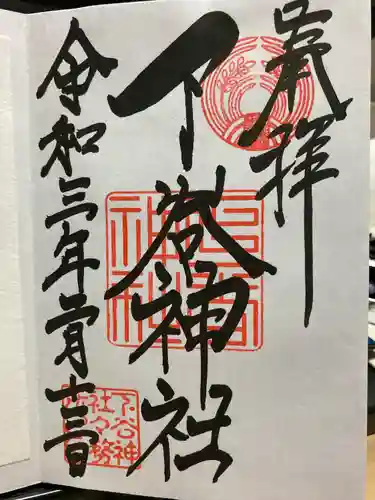 奉拝
下谷神社
令和三年二月十三日
下谷
神社
下谷神
社々務